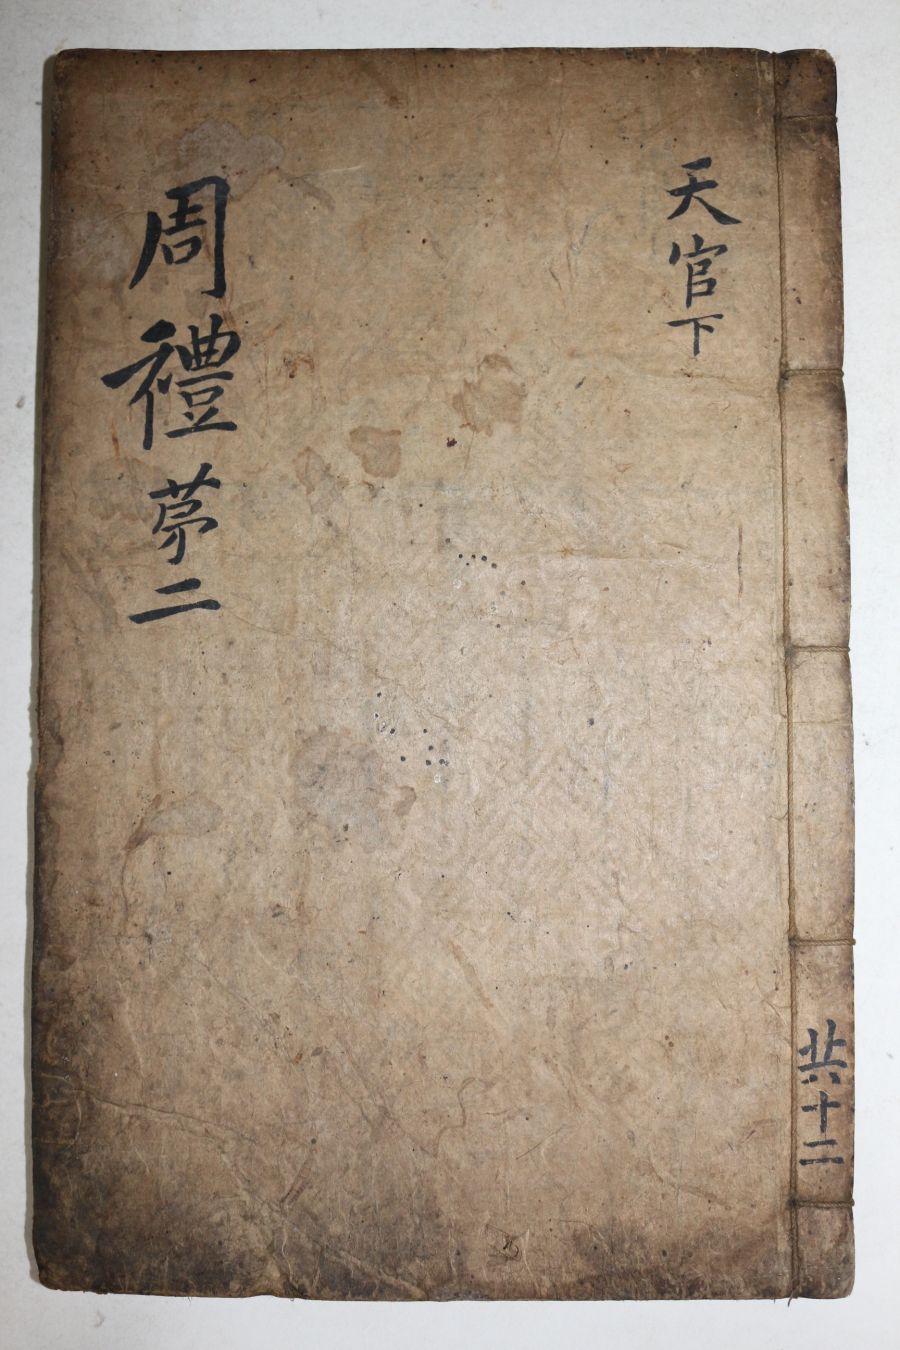 天官下
周禮苐二
共十二